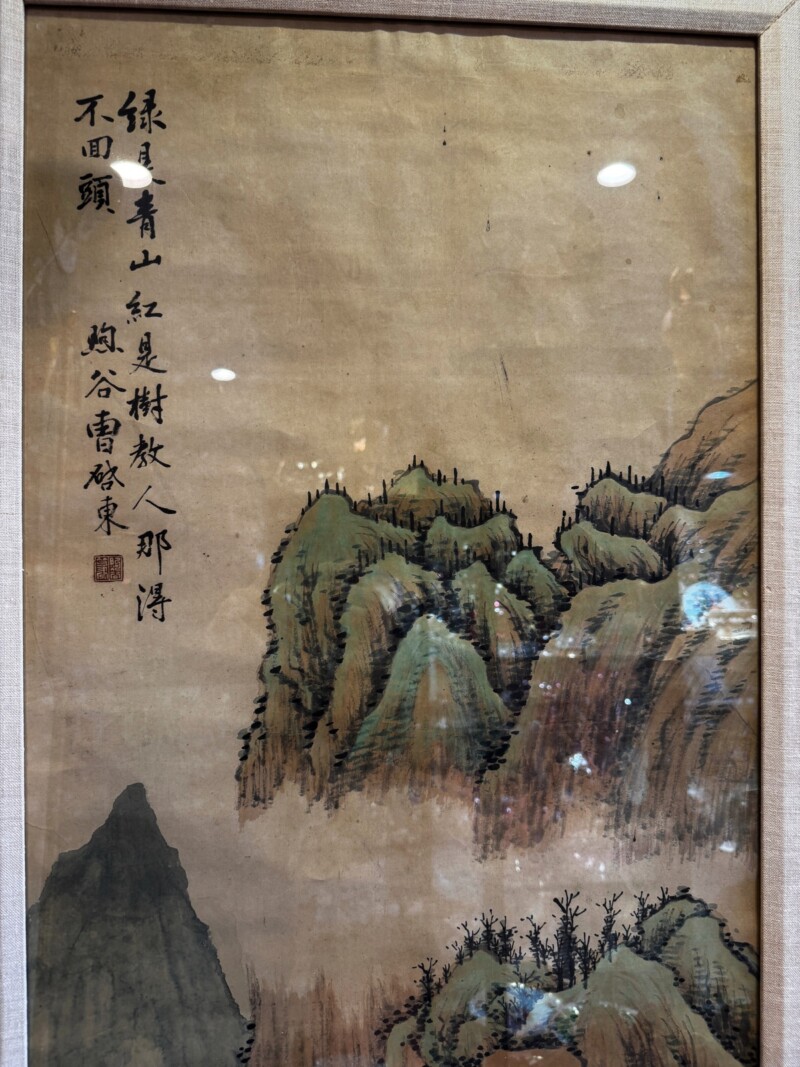 綠是青山紅是樹教人那得
不回頭
煦谷曹啓東